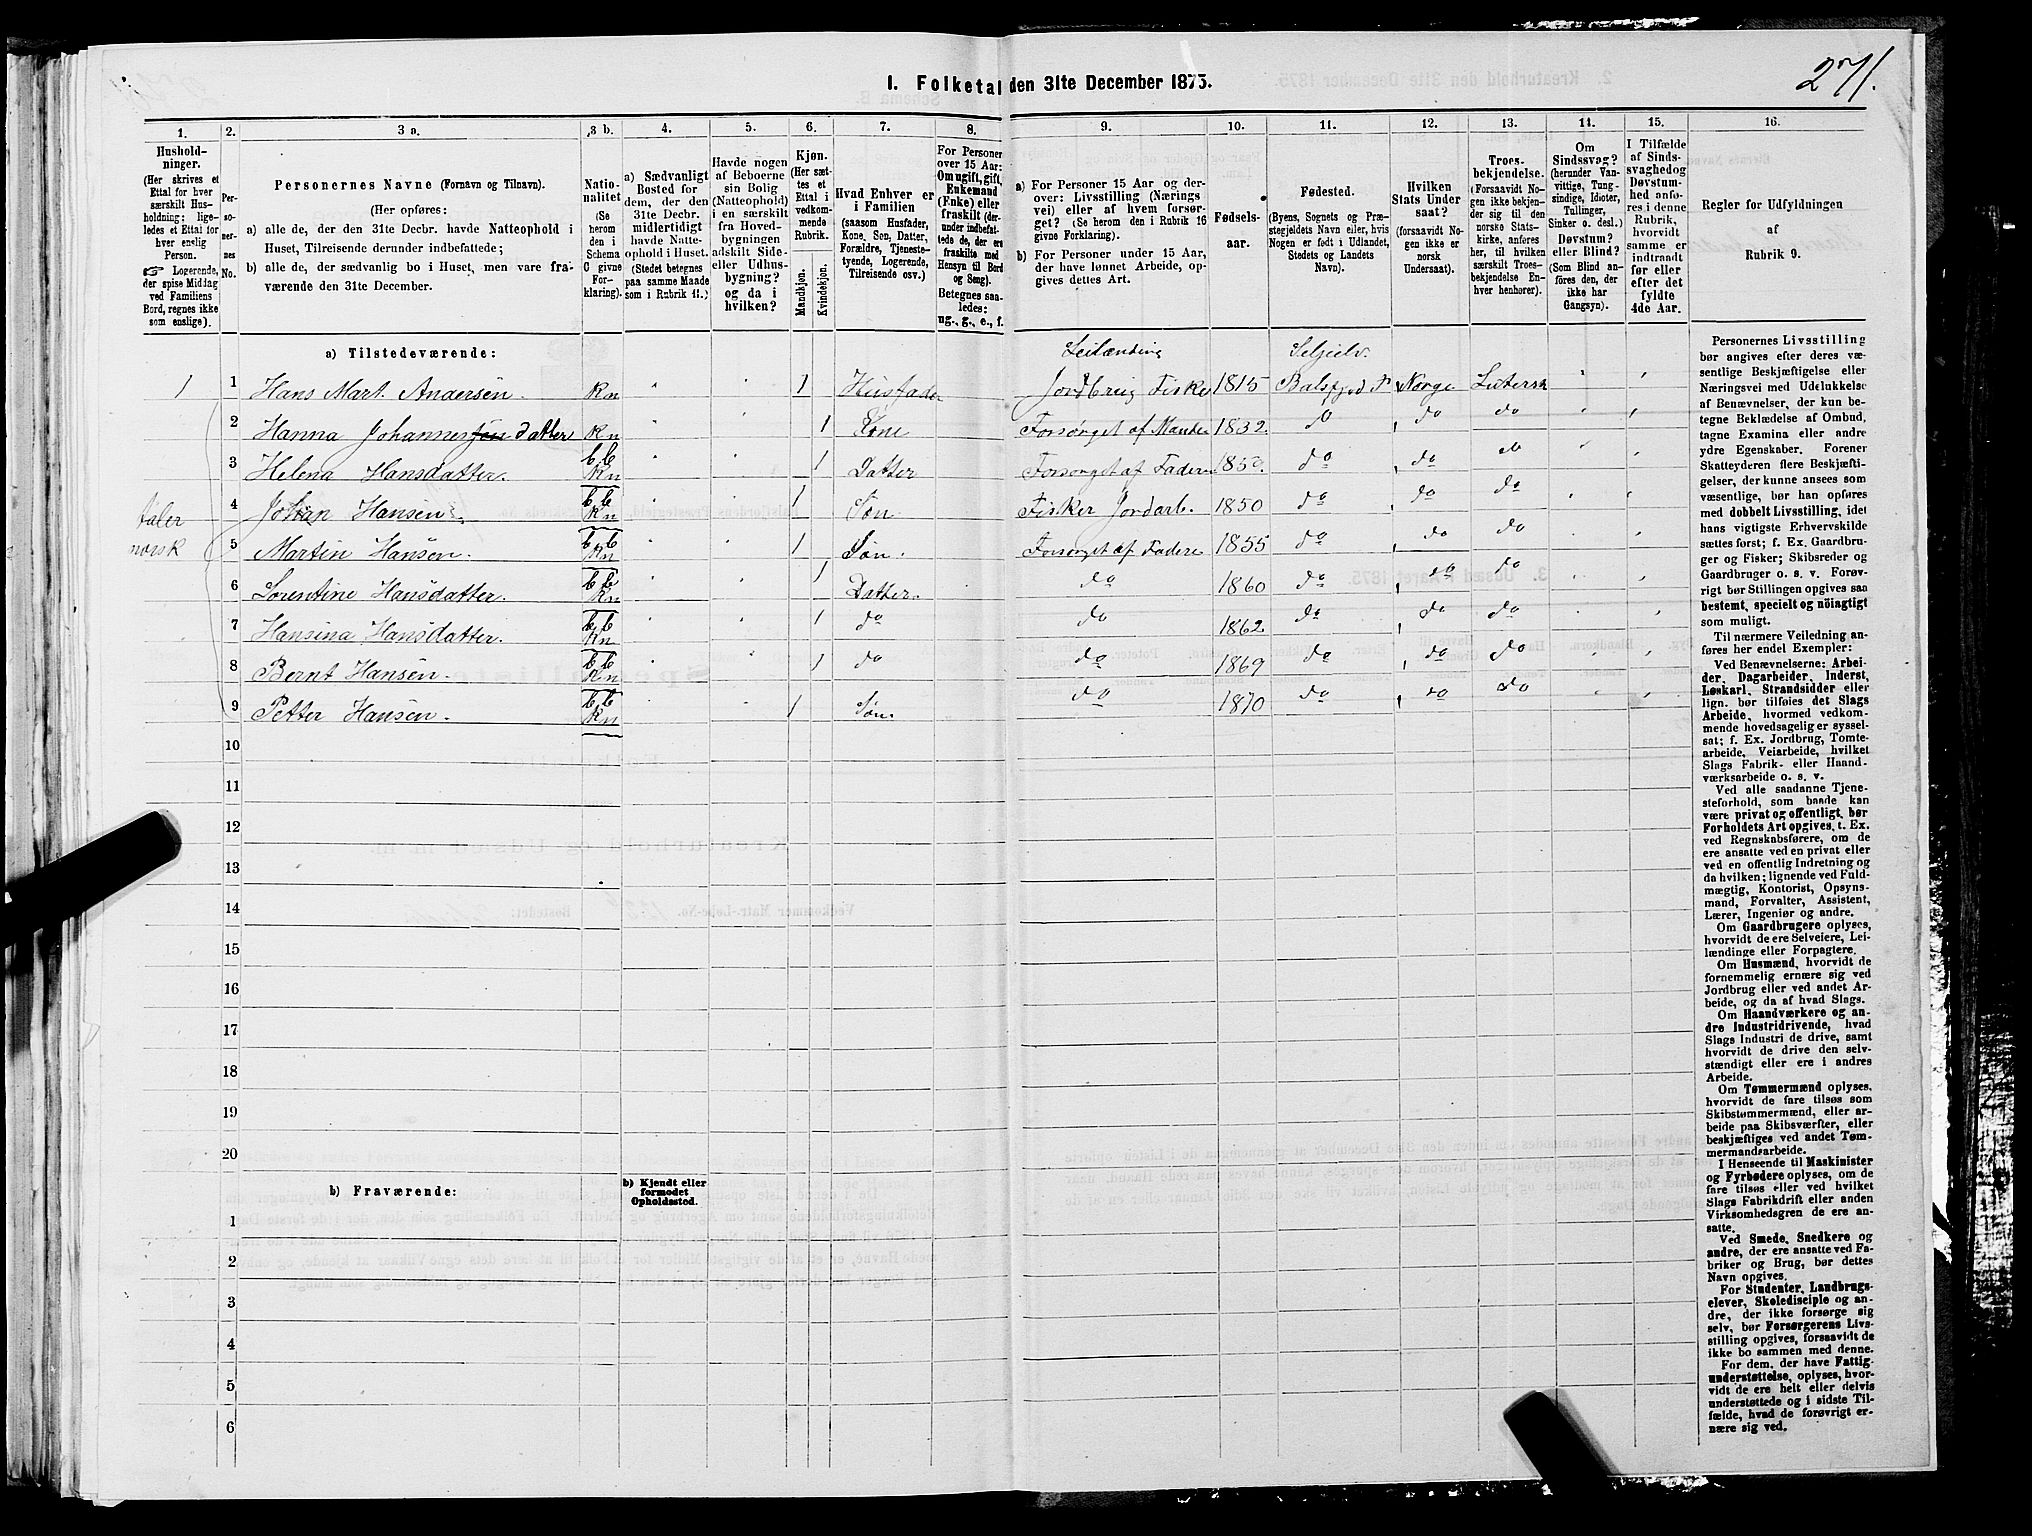 271.
I. Folketal den 31te December 1875.
1. 2. 3 a. 3 b. 4. 5. 6. 7. 8. 9. 10. 11. 12. 13. 14. 15. 16.
Hushold-
ninger.
(Her skrives et
Ettal for hver
særskilt Hus-
holdning; lige-
ledes et Ettal for
hver enslig
Person.
☞ Logerende,
der spise Middag
ved Familiens
Bord, regnes ikke
som enslige).
Per-
so-
ner-
nes
No.
Personernes Navne (Fornavn og Tilnavn).
(Her opføres:
a) alle de, der den 31te Decbr. havde Natteophold i
Huset, Tilreisende derunder indbefattede;
b) alle de, der sædvanlig bo i Huset, men vare fra-
værende den 31te December.
Natio-
nalitet
(Se
herom
den i
Schema
C givne
For-
klaring).
a) Sædvanligt
Bosted for
dem, der den
31te Decbr.
midlertidigt
havde Natte-
ophold i Huset.
(Stedet betegnes
paa samme Maade
som i Rubrik 11.)
Havde nogen
af Beboerne
sin Bolig
(Natteophold)
i en særskilt
fra Hoved-
bygningen
adskilt Side-
eller Udhus-
bygning?
og da i
hvilken?
Kjøn.
(Her sæt-
tes et
Ettal i
vedkom-
mende
Rubrik.
Mandkjøn.
Kvindekjøn.
Hvad Enhver er
i Familien
(saasom Husfader,
Kone, Søn, Datter,
Forældre, Tjeneste-
tyende, Logerende,
Tilreisende osv.)
For Personer
over 15 Aar:
Om ugift, gift,
Enkemand
(Enke) eller
fraskilt (der-
under indbefat-
tede de, der ere
fraskilte med
Hensyn til Bord
og Seng).
Betegnes saa-
ledes:
ug., g., e., f.
a) For Personer 15 Aar og der-
over: Livsstilling (Nærings
vei) eller af hvem forsør-
get? (Se herom den i Rubrik 16
givne Forklaring).
b) For Personer under 15 Aar,
der have lønnet Arbeide, op-
gives dettes Art.
Fødsels-
aar.
Fødested.
(Byens, Sognets og Præ-
stegjeldets Navn eller, hvis
Nogen er født i Udlandet,
Stedets og Landets
Navn).
Hvilken
Stats Under
saat?
(forsaavidt No-
gen ikke er
norsk
Undersaat).
Troes-
bekjendelse.
(Forsaavidt No-
gen ikke bekjen-
der sig til den
norske Stats-
kirke, anføres
her, til hvilken
særskilt Troes-
bekjendelse En-
hver henhører).
Om
Sindssvag?
(herunder Van-
vittige, Tung-
sindige, Idioter,
Tullinger,
Sinker o. desl.)
Døvstum?
eller Blind?
(Som Blind an-
føres den, der
ikke har
Gangsyn).
I Tilfælde
af Sinds-
svaghed og
Døvstum-
hed anfø-
res i denne
Rubrik,
hvorvidt
samme er
indtraadt
før eller
efter det
fyldte
4de Aar.
Regler for Udfyldningen
af
Rubrik 9.
a) Tilstedeværende:
Leilænding
1 1 Hans Mart. Andersen. Kn 1 Husfader Jordbrug Fisker 1815 Balsfjord P Norge Lutersk
2 Hanna Johannes datter Kn 1 Kone Forsørget af Manden 1832. do do do
3 Helena Hansdatter. Kn 1 Datter Forsørget af Faderen do do do
taler
4 Johan Hansen. Kn 1 Søn. Fisker Jordarb. 1850 do do do
norsk
5 Martin Hansen. Kn 1 Søn. Forsørget af Fadere 1855 do do do
6 Lorentine Hansdatter. Kn 1 Datter. do 1860 do do do
7 Hansina Hansdatter. Kn 1 do do 1862 do do do
8 Bernt Hansen. Kn 1 do do 1869 do do do
9 Petter Hansen. Kn 1 Søn. do 1870 do do do
10
11
12
13
14
15
16
17
18
19
20
b) Fraværende:
b) Kjendt eller
formodet
Opholdssted.
1
2
3
4
5
6
Personernes Livsstilling
bør angives efter deres væ-
sentlige Beskjæftigelse eller
Næringsvei med Udelukkelse
af Benævnelser, der kun be-
tegne Beklædelse af Ombud,
tagne Examina eller andre
ydre Egenskaber. Forener
Skatteyderen flere Beskjæfti-
gelser, der kunne ansees som
væsentlige, bør han opføres
med dobbelt Livsstilling, idet
hans vigtigste Erhvervskilde
sættes først; f. Ex. Gaardbru-
ger og Fisker; Skibsreder og
Gaardbruger o. s. v. Forøv-
rigt bør Stillingen opgives saa
bestemt, specielt og nöiagtigt
som muligt.
Til nærmere Veiledning an-
føres her endel Exempler:
Ved Benævnelserne: Arbei-
der, Dagarbeider, Inderst,
Løskarl, Strandsidder eller
lign. bør tilføies det Slags
Arbeide, hvormed vedkom-
mende hovedsagelig er syssel-
sat; f. Ex. Jordbrug, Tomte-
arbeide, Veiarbeide, hvilket
Slags Fabrik- eller Haand-
værksarbeide o. s. v.
Ved alle saadanne Tjene-
steforhold, som baade kan
være privat og offentligt, bør
Forholdets Art opgives, t. Ex.
ved Regnskabsførere, om de
ere ansatte ved en privat eller
ved en offentlig Indretning og
da hvilken; lignende ved Fuld-
mægtig, Kontorist, Opsyns-
mand, Forvalter, Assistent,
Lærer, Ingeniør og andre.
Om Gaardbrugere oplyses,
hvorvidt de ere Selveiere, Lei-
lændinge eller Forpagtere.
Om Husmænd, hvorvidt de
fornemmelig ernære sig ved
Jordbrug eller ved andet Ar-
beide, og da af hvad Slags.
Om Haandværkere og an-
dre Industridrivende, hvad
Slags Industri de drive, samt
hvorvidt de drive den selv-
stændigt eller ere i andres
Arbeide.
Om Tømmermænd oplyses,
hvorvidt de fare tilsøs som
Skibstømmermænd, eller ar-
beide paa Skibsværfter, eller
beskjæftiges ved andet Tøm-
mermandsarbeide.
I Henseende til Maskinister
og Fyrbødere oplyses, om de
fare tilsøs eller ved hvilket
Slags Fabrikdrift eller anden
Virksomhedsgren de ere an-
satte.
Ved Smede, Snedkere og
andre, der ere ansatte ved Fa-
briker og Brug, bør dettes
Navn opgives.
For Studenter, Landbrugs-
elever, Skoledisciple og an-
dre, der ikke forsørge sig
selv, bør Forsørgerens Livs-
stilling opgives, forsaavidt de
ikke bo sammen med denne.
For dem, der have Fattig-
understøttelse, oplyses, hvor-
vidt de ere helt eller delvis
understøttede og i sidste Til-
fælde, hvad de forøvrigt er-
nære sig ved.